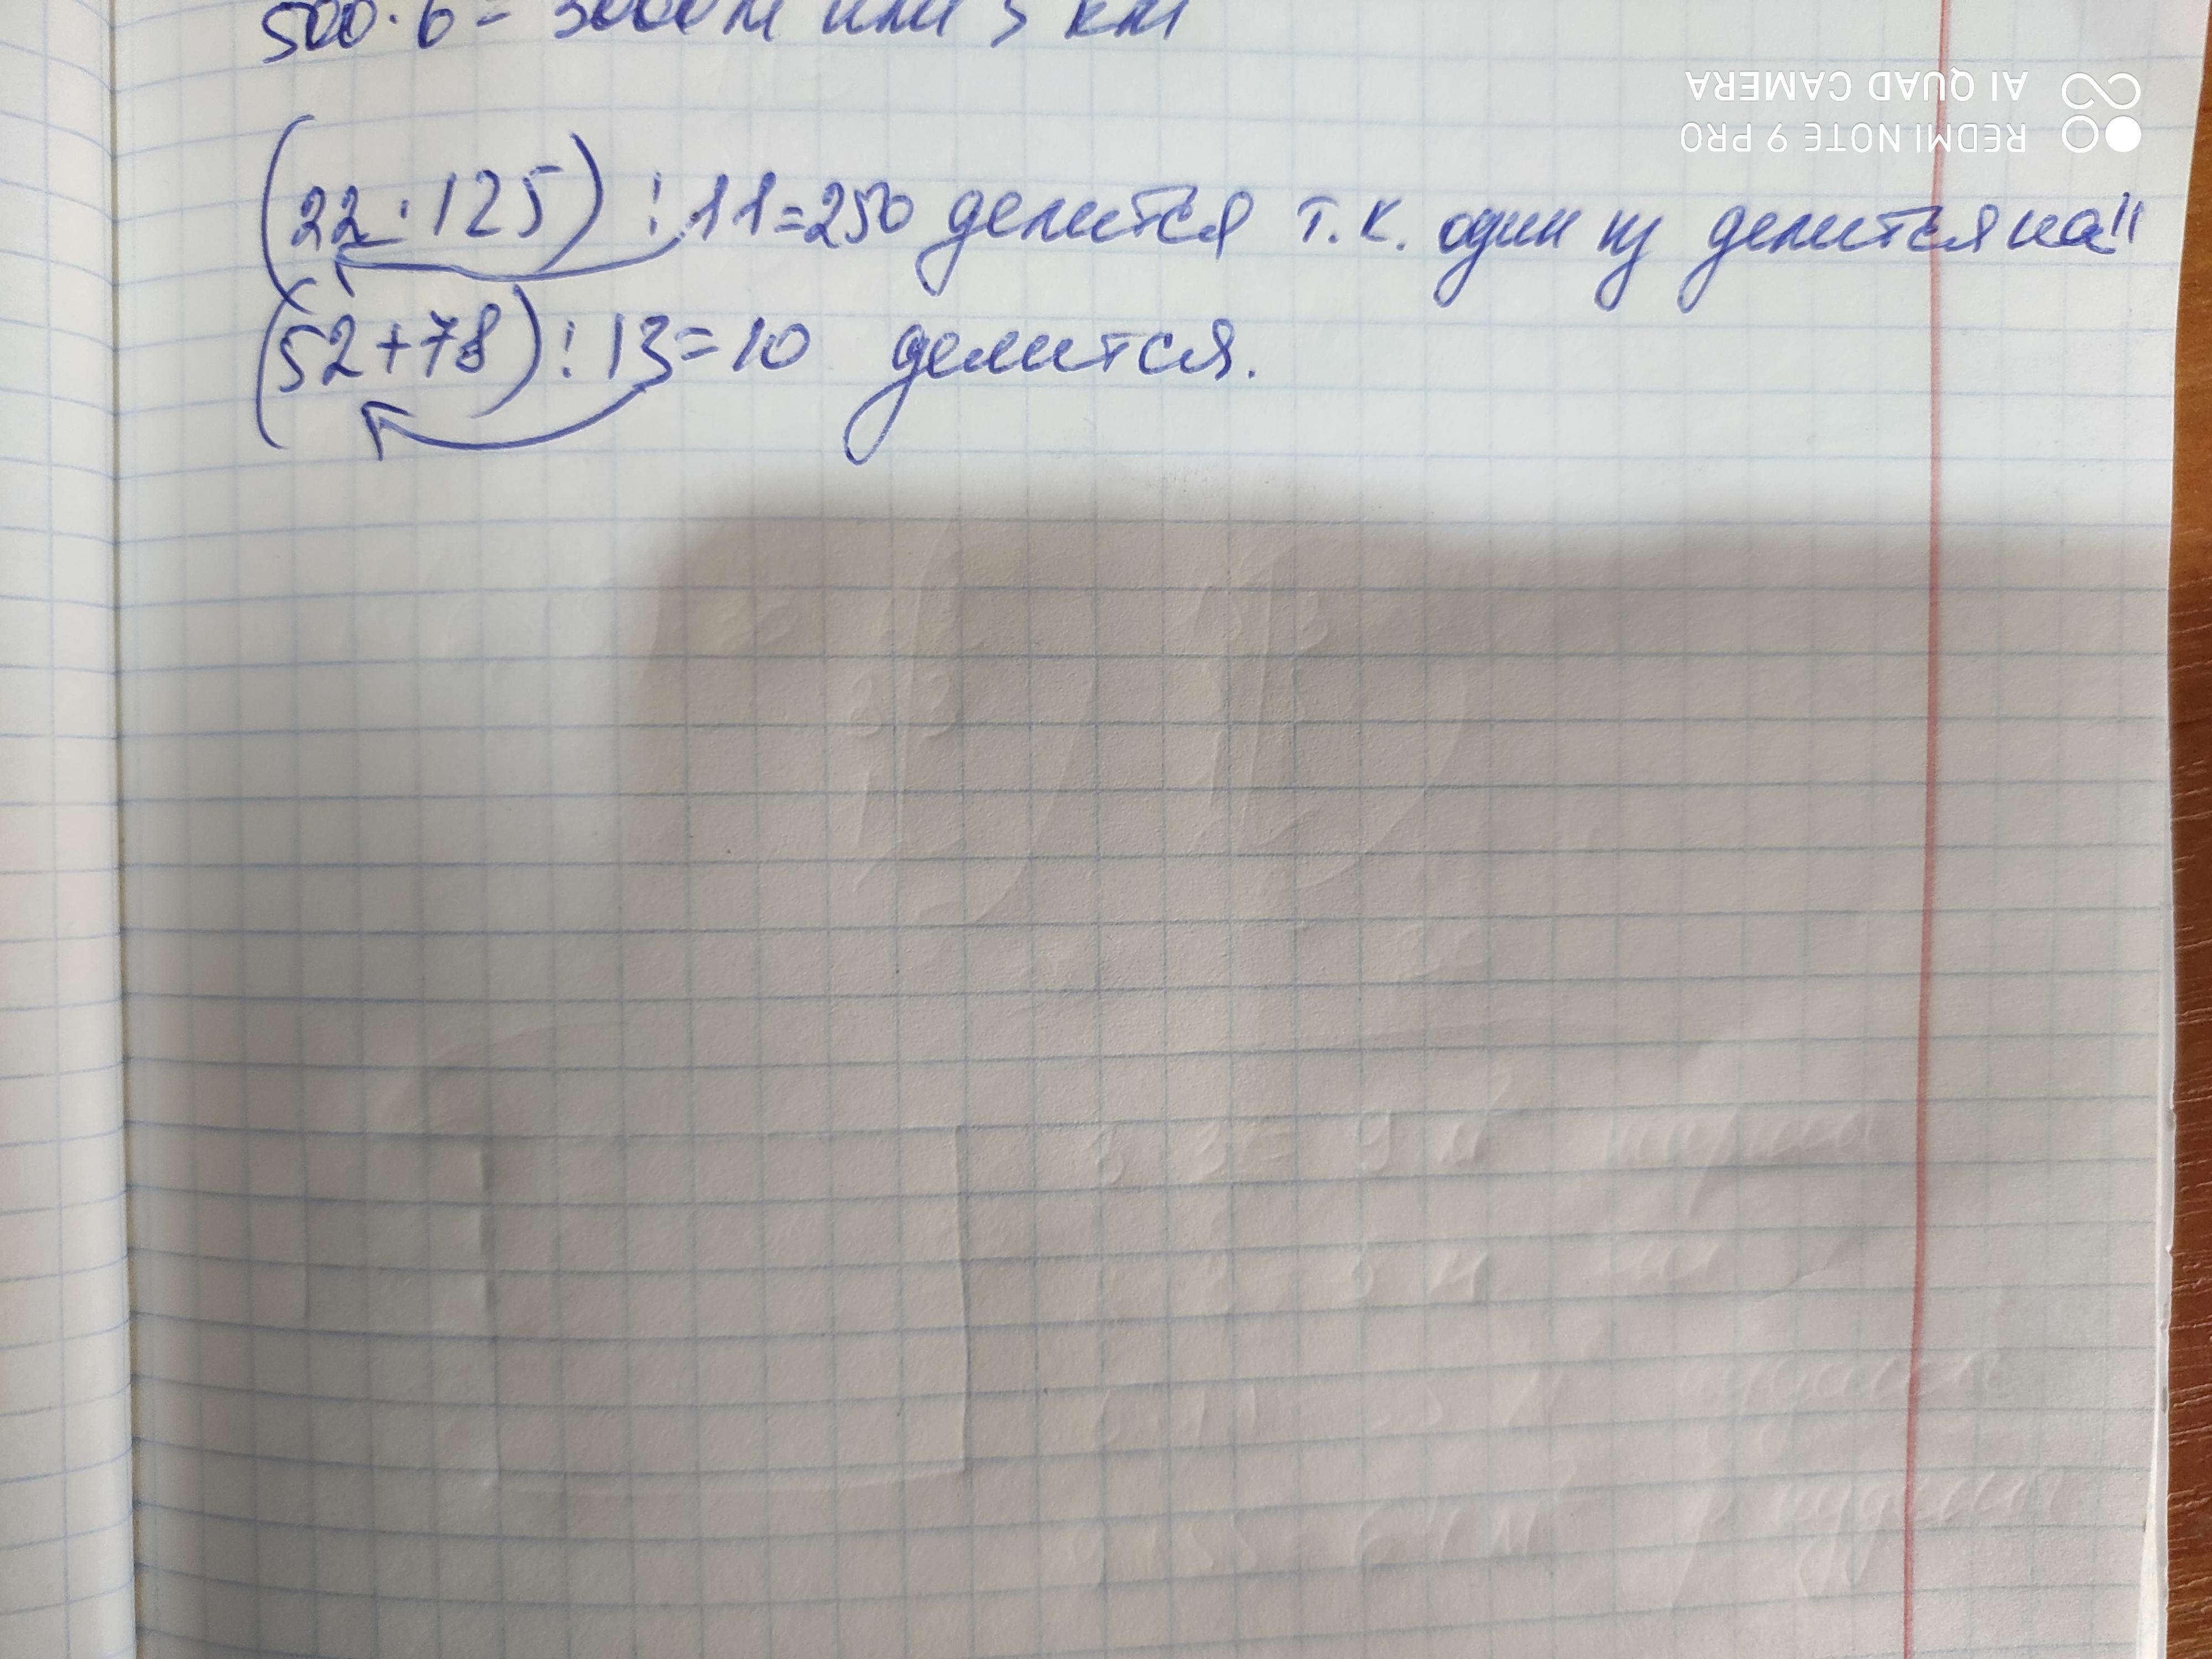 500·6= 3000м или 3 км
REDMI NOTE 9 PRO
AI QUAD CAMERA
(22·125):11=250 делится т.к. один из делится на 11
(52+78):13=10 делится.